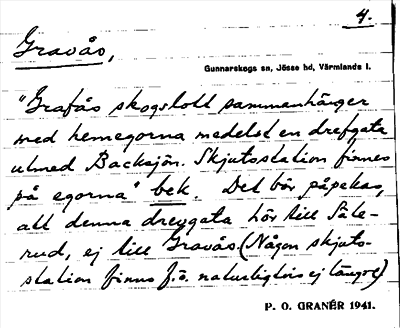 4.
Gravås,
Gunnarskogs sn, Jösse hd, Värmlands l.
"Grafås skogslott sammanhänger
med hemegorna medelst en drefgata
utmed Backsjön. Skjutsstation finnes
på egorna" bek. Det bör påpekas,
att denna drevgata hör till Säle-
rud, ej till Gravås. (Någon skjuts-
station finns f.ö. naturligtvis ej längre)
P. O. GRANÉR 1941.